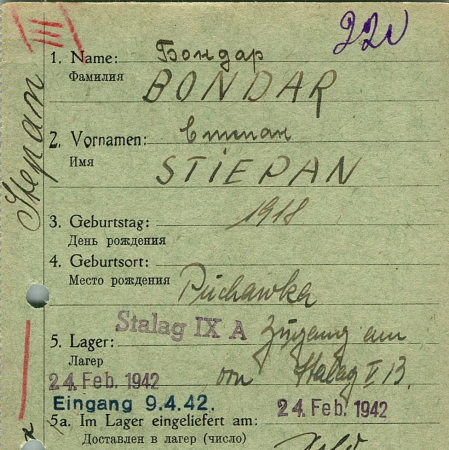 III 220
1. Name: Бондар
Фамилия BONDAR
2. Vornamen: Степан
Имя STIEPAN
Stepan
3. Geburtstag: 1918
День рождения
4. Geburtsort:
Место рождения Puchawka
5. Lager: Stalag IX A Zugang am
Лагер von Stalag V B.
24. Feb. 1942
Eingang 9.4.42. 24. Feb. 1942
5a. Im Lager eingeliefert am:
Доставлен в лагер (число)